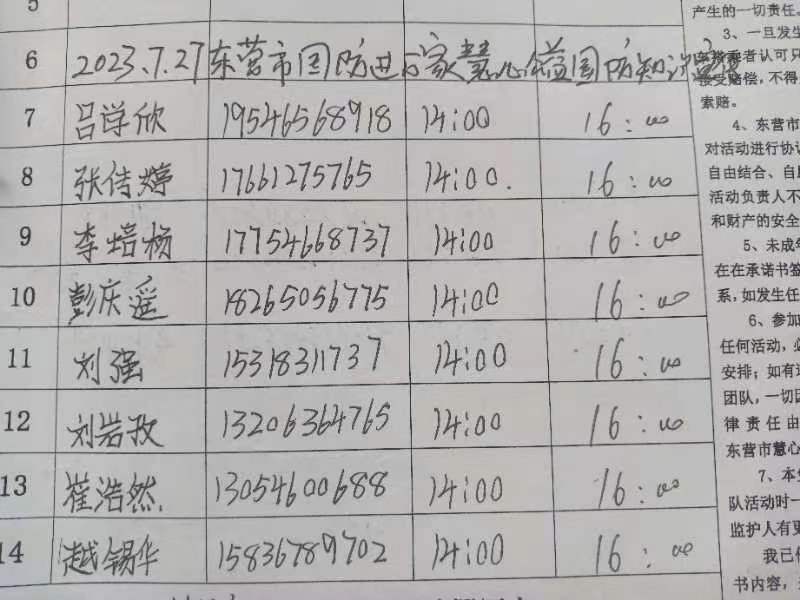 5
6 2023.7.27东营市国防进万家慧心公益国防知识宣讲
7 吕学欣 19546568918 14:00 16:00
8 张倩婷 17661275765 14:00. 16:00
9 李培杨 17754668737 14:00 16:00
10 彭庆遥 18265056775 14:00 16:00
11 刘强 15318311737 14:00 16:00
12 刘岩孜 13206364765 14:00 16:00
13 崔浩然 13054600688 14:00 16:00
14 赵锡华 15836789702 14:00 16:00
产生的一切责任。
3、一旦发生
者认可只
接受赔偿，不得
索赔。
4、东营市
对活动进行协
自由结合、自
活动负责人不
和财产的安全
5、未成年
在在承诺书签
系，如发生任
6、参加
任何活动，必
安排；如有
团队，一切因
律责任由
东营市慧心
7、本
队活动时一
监护人有更
我已
书内容，